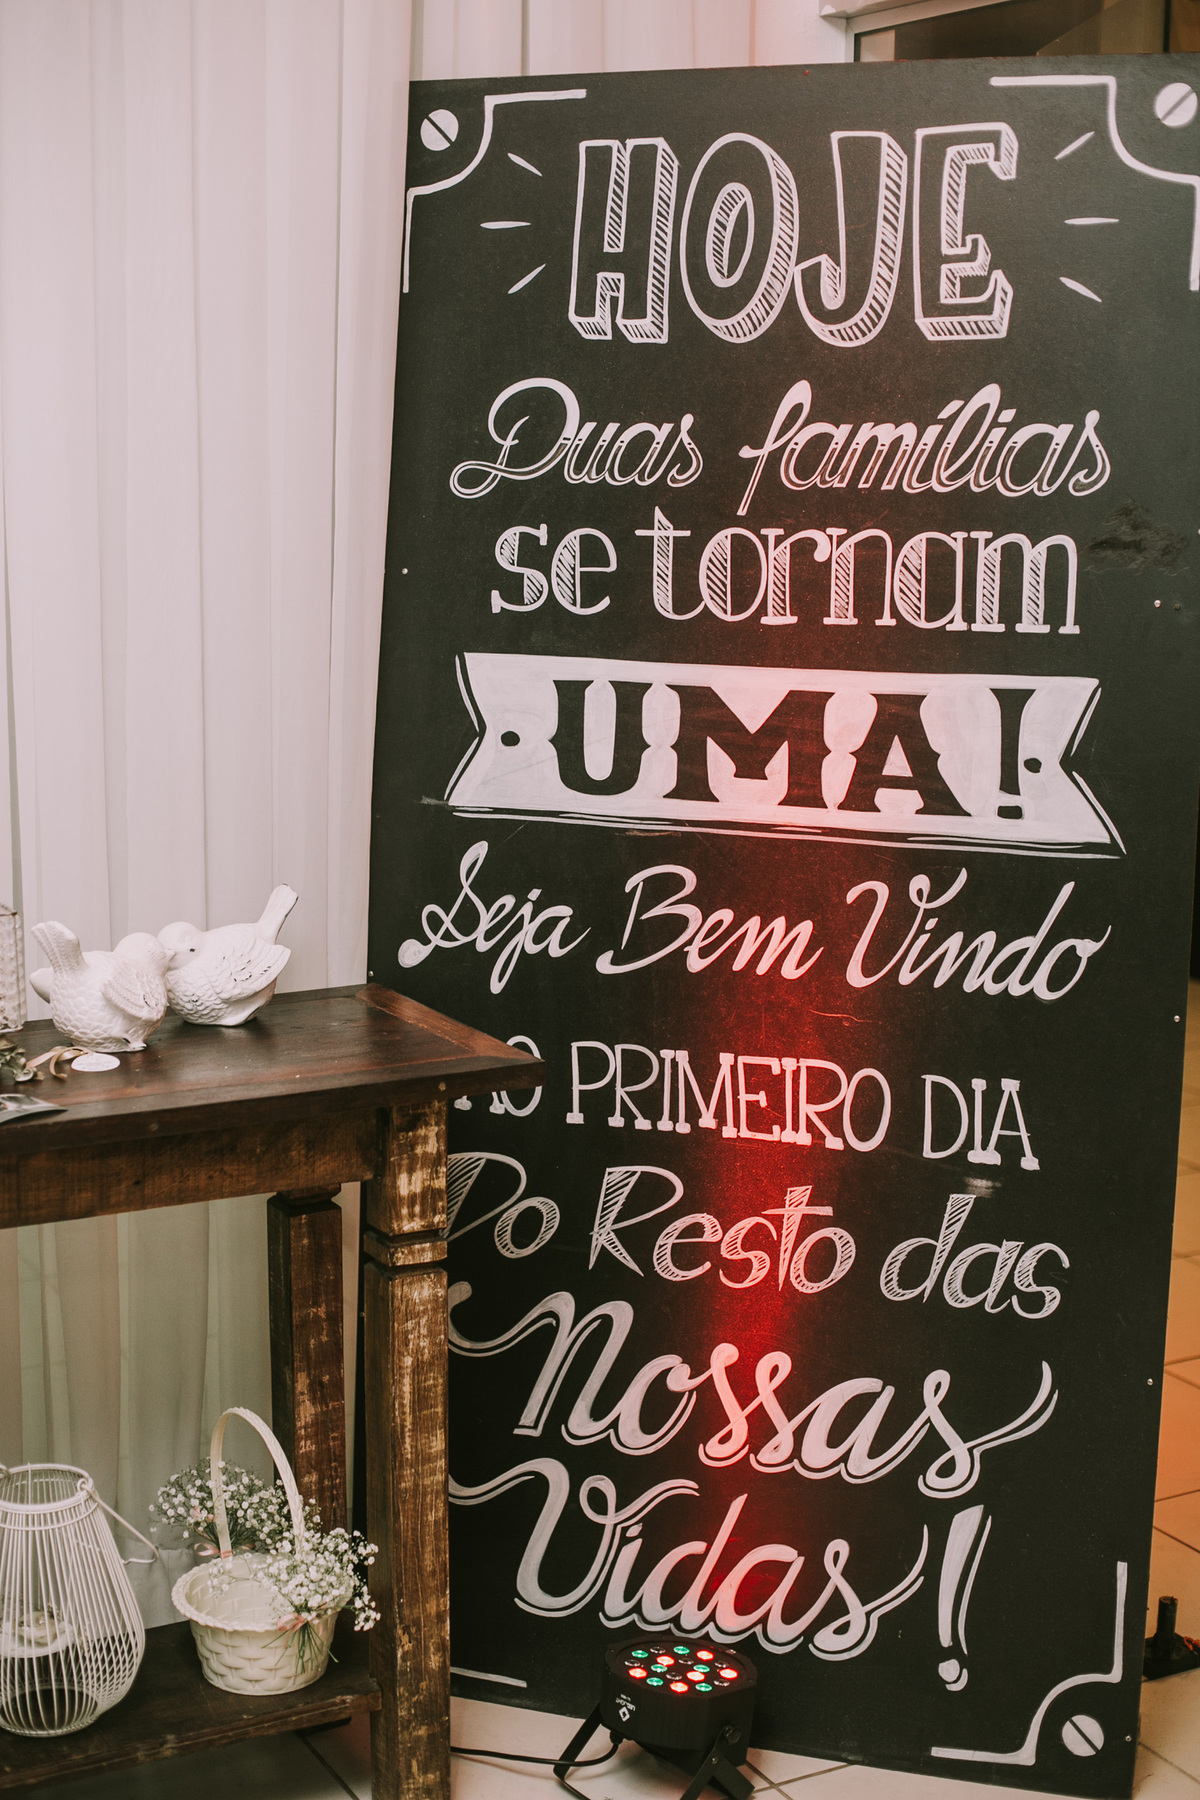 HOJE
Duas famílias
se tornam
UMA!
Seja Bem Vindo
AO PRIMEIRO DIA
Do Resto das
Nossas
Vidas!